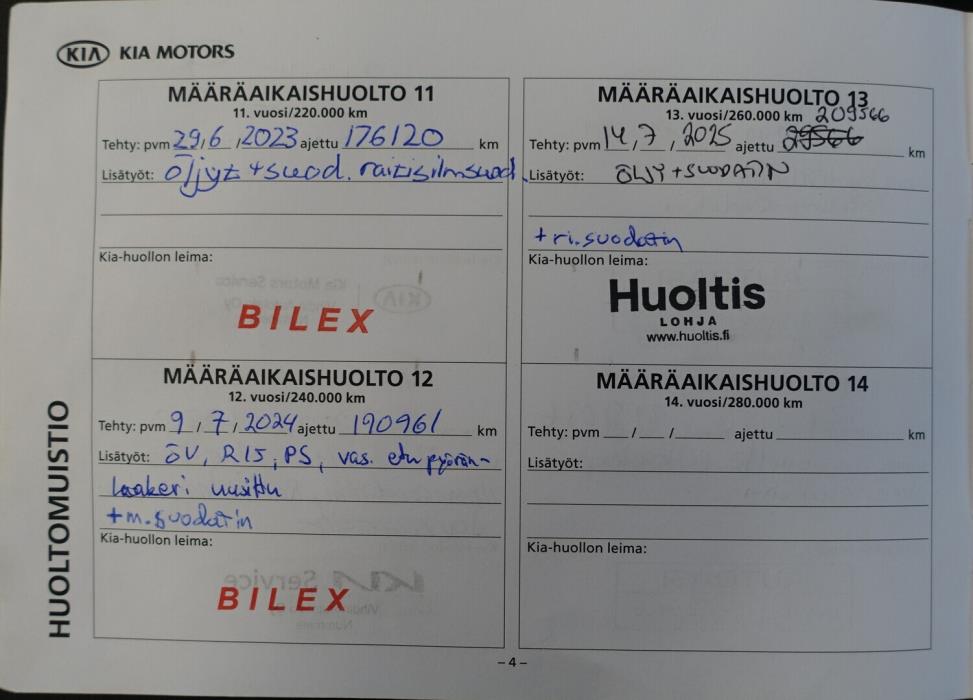 KIA KIA MOTORS
MÄÄRÄAIKAISHUOLTO 11
11. vuosi/220.000 km
Tehty: pvm 29,6,2023 ajettu 176120 km
Lisätyöt: öljyt + suod. raitisilmsuod.
Kia-huollon leima:
BILEX
MÄÄRÄAIKAISHUOLTO 12
12. vuosi/240.000 km
Tehty: pvm 9/7/2024 ajettu 190961 km
Lisätyöt: ÖV, RIS, PS, vas. etupyörän-
laakeri uusittu
+m.suodatin
Kia-huollon leima:
BILEX
MÄÄRÄAIKAISHUOLTO 13
13. vuosi/260.000 km 209566
Tehty: pvm 14,7,2025 ajettu 29566 km
Lisätyöt: ÖLJY+SUODATIN
+ri.suodatin
Kia-huollon leima:
Huoltis
LOHJA
www.huoltis.fi
MÄÄRÄAIKAISHUOLTO 14
14. vuosi/280.000 km
Tehty: pvm / / ajettu km
Lisätyöt:
Kia-huollon leima:
HUOLTOMUISTIO
– 4 –